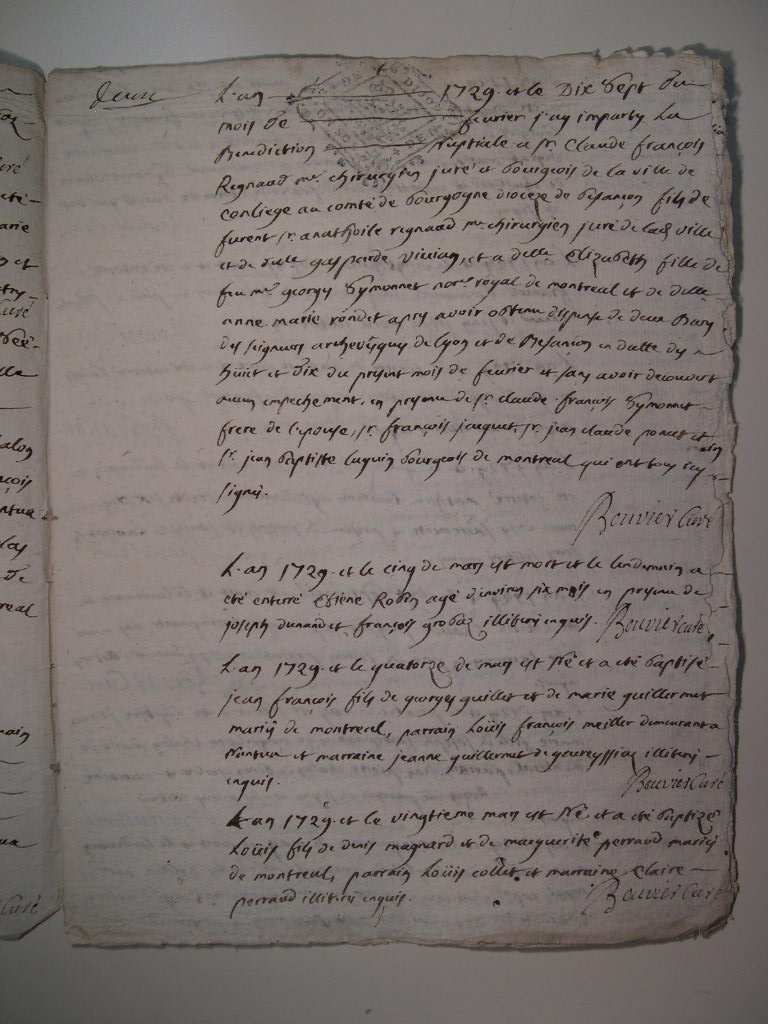 deux
L'an 1729. et le Dix Sept du
mois de fevrier j'ay imparty La
Benediction Nuptiale a sr. Claude françois
Regnaud me. chirurgien juré et bourgeois de la ville de
Conliege au comté de bourgogne dioceze de besançon fils de
furent sr. anathoile regnaud me. chirurgien juré de lad. ville
et de delle. gasparde vuillan, et a delle. Elizabeth fille de
feu me. georges Symonnet nore. royal de montreal et de delle.
anne marie rondet apres avoir obtenu dispense de deux Bans
des seigneurs archevesques de Lyon et de Besançon en datte des
huit et dix du present mois de fevrier et sans avoir decouvert
aucun empechement, en presence de sr. claude françois Symonnet
frere de l'epouse, sr. françois jacquet, sr. jean claude ponset et
sr. jean baptiste luquin bourgeois de montreal qui ont tous icy
signés.
Bouvier Curé
L'an 1729. et le cinq de mars est mort et le lendemain a
eté enterré Etiene Robin agé d'environ six mois en presence de
joseph dunand et françois grobaz illiterés enquis. Bouvier curé
L'an 1729. et le quatorze de mars est Né et a eté baptisé
jean françois fils de georges guillet et de marie guillermet
mariés de montreal, parrain Loüis françois meiller demeurant a
Nantua et marraine jeanne guillermet de geovreyssiaz illiterés
enquis. Bouvier Curé
L'an 1729. et le vingtieme mars est Né et a eté baptizé
Loüis fils de denis magnard et de marguerite perraud mariés
de montreal, parrain Loüis collet et marraine claire
perraud illiterés enquis. Bouvier Curé